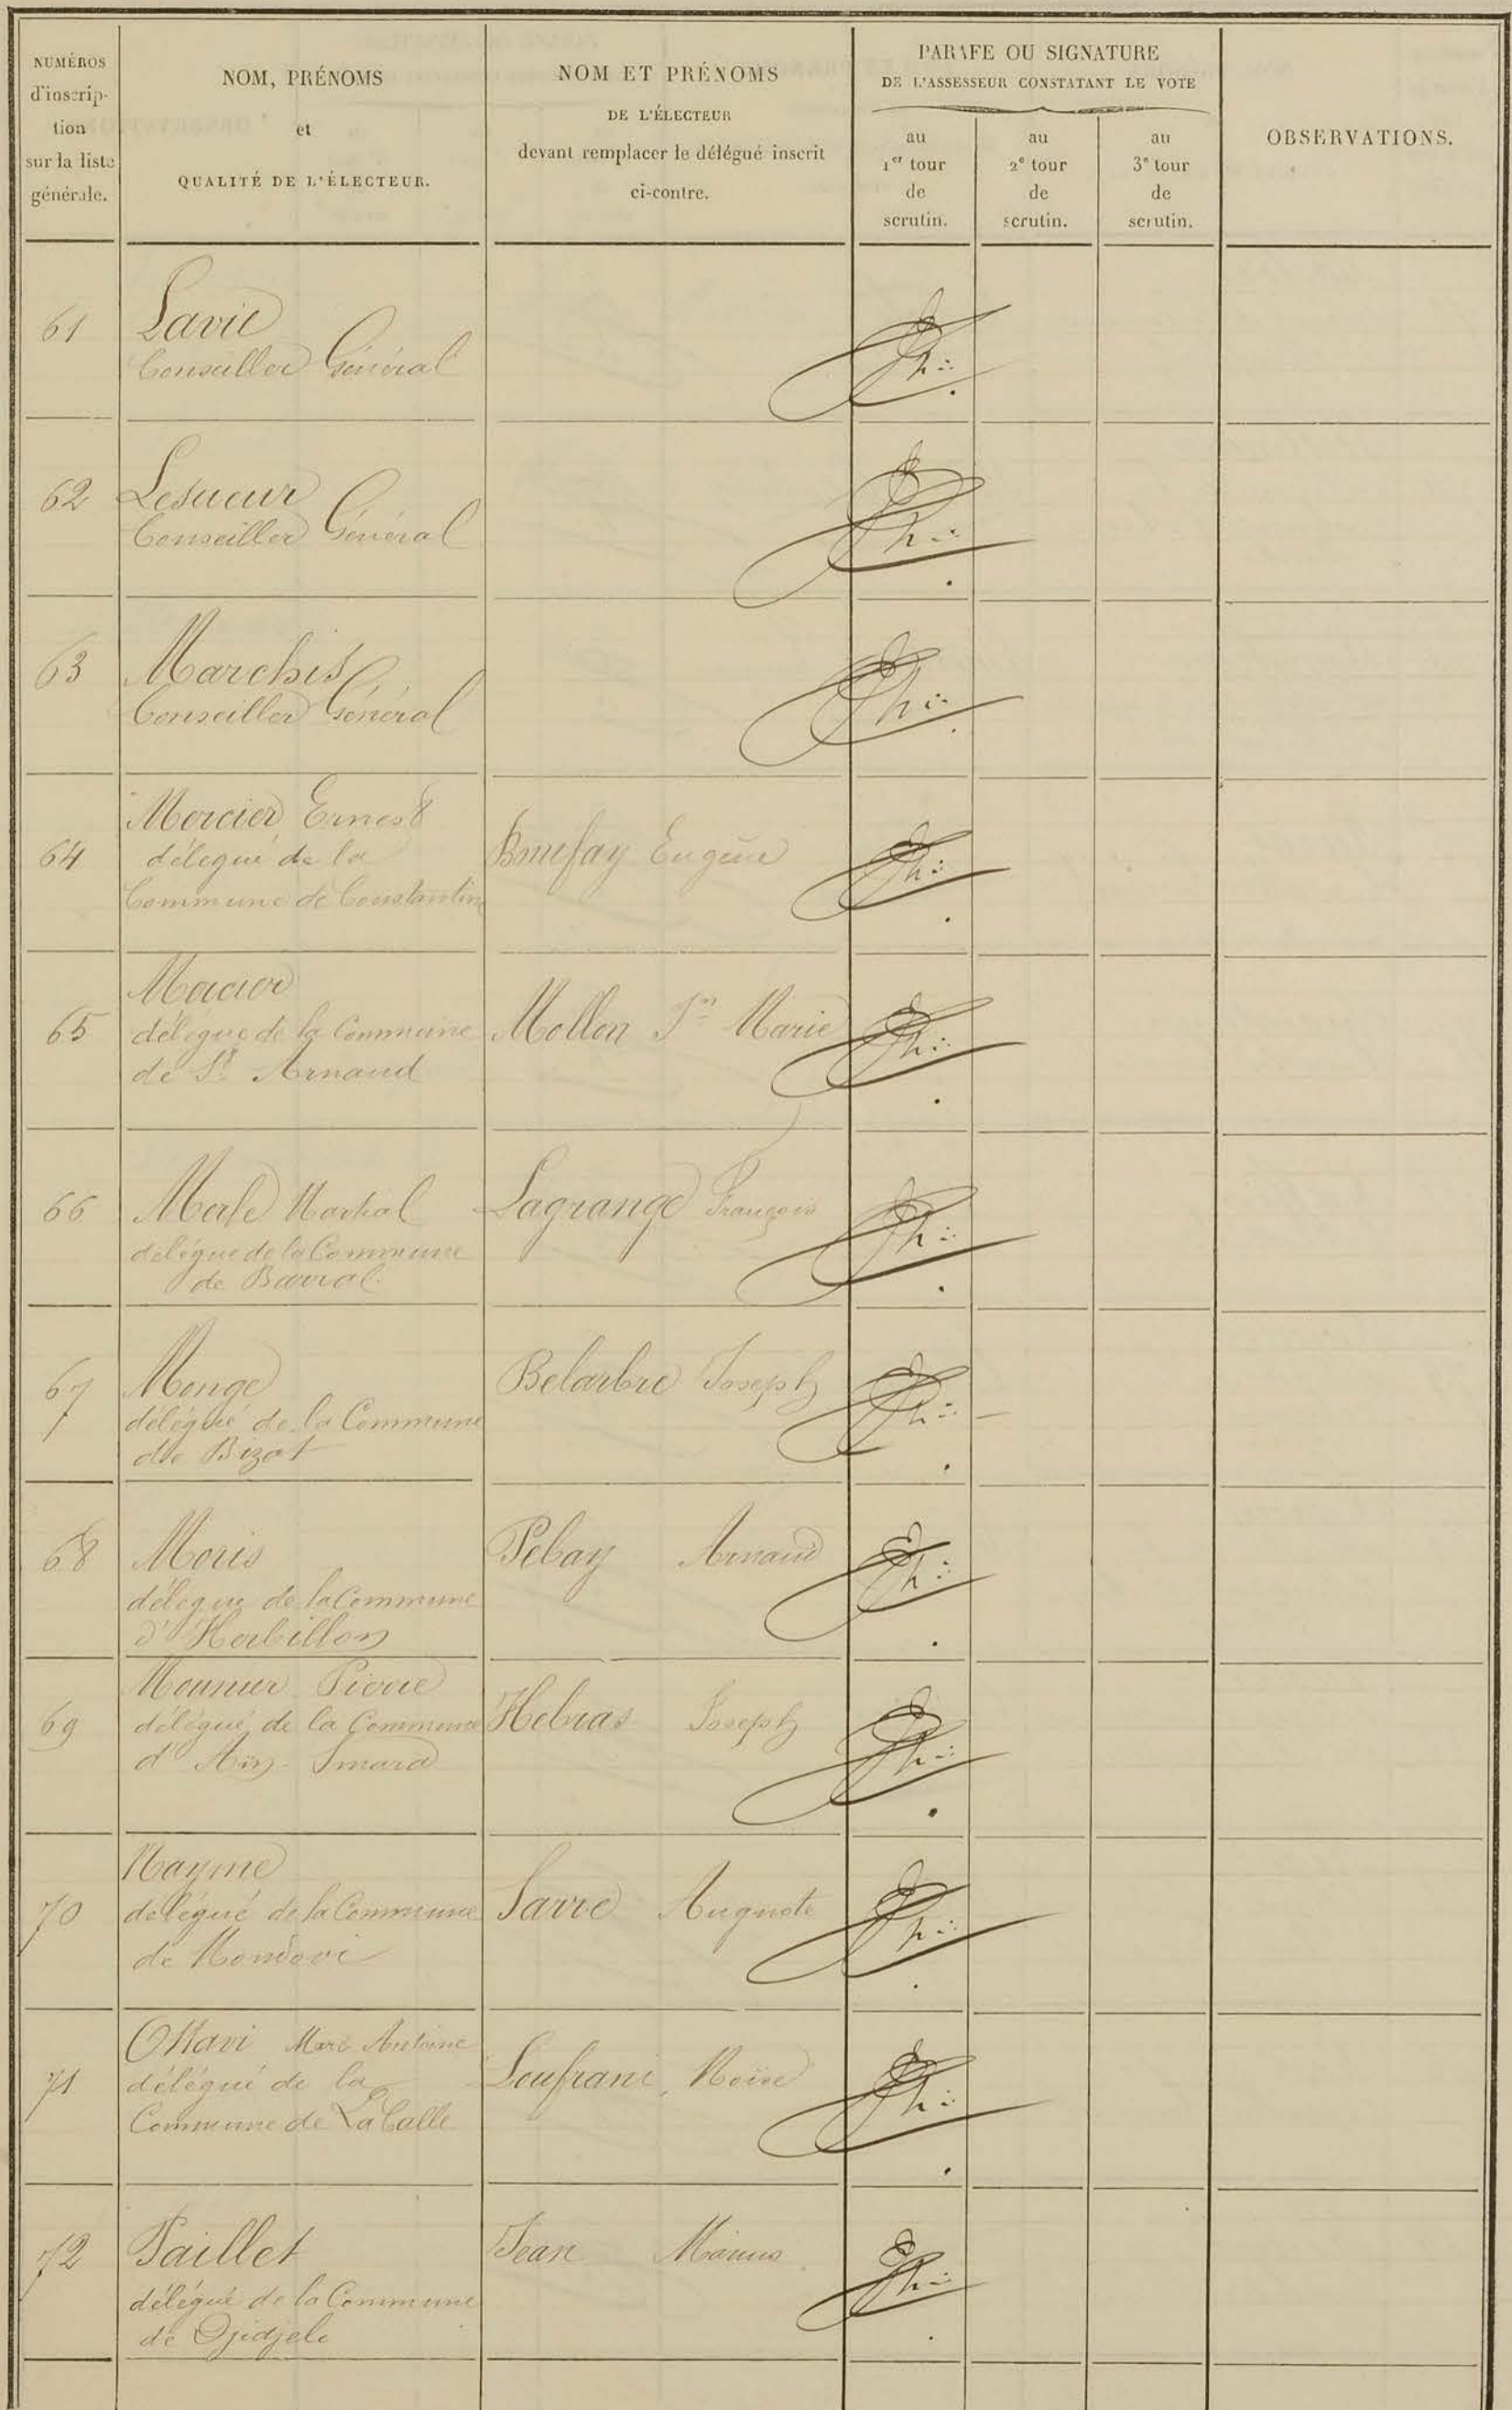 NUMÉROS
d'inscrip-
tion
sur la liste
générale.
NOM, PRÉNOMS
et
QUALITÉ DE L'ÉLECTEUR.
NOM ET PRÉNOMS
DE L'ÉLECTEUR
devant remplacer le délégué inscrit
ci-contre.
PARAFE OU SIGNATURE
DE L'ASSESSEUR CONSTATANT LE VOTE
au
1er tour
de
scrutin.
au
2e tour
de
scrutin.
au
3e tour
de
scrutin.
OBSERVATIONS.
61
Lavie
Conseiller Général
62
Lesueur
Conseiller Général
63
Marchis
Conseiller Général
64
Mercier Ernest
délégué de la
Commune de Constantine
Eugène
65
Mercier
délégué de la Commune
de St Arnaud
Mollon Jn Marie
66
Merle Martial
délégué de la Commune
de Barral
Lagrange François
67
Monge
délégué de la Commune
de Bizot
Belarbre Joseph
68
Moris
délégué de la Commune
d'Herbillon
Pebay Arnaud
69
Mounier Pierre
délégué de la Commune
d'Aïn-Smara
Hebras Joseph
70
Nayme
délégué de la Commune
de Mondovi
Sarre Auguste
71
Ottavi Marc Antoine
délégué de la
Commune de La Calle
Loufrani, Moïse
72
Paillet
délégué de la Commune
de Djidjeli
Jean Marius